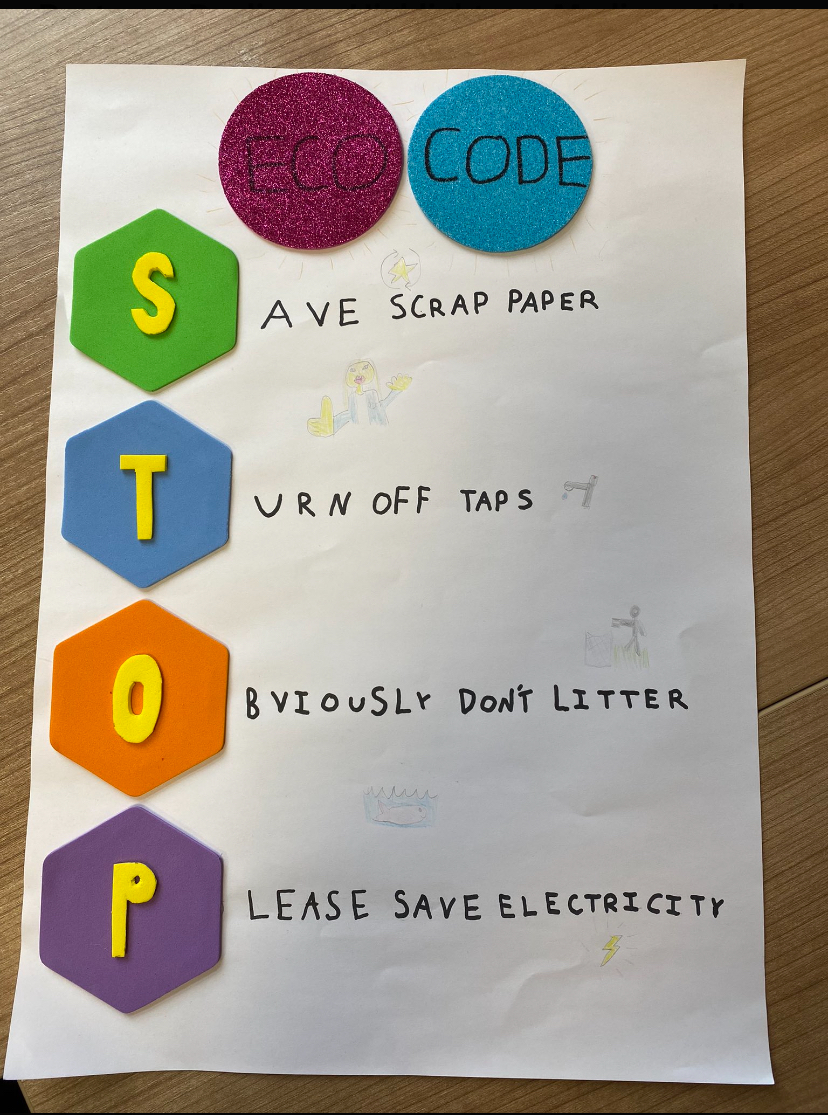 ECO CODE
SAVE SCRAP PAPER
TURN OFF TAPS
OBVIOUSLY DON'T LITTER
PLEASE SAVE ELECTRICITY